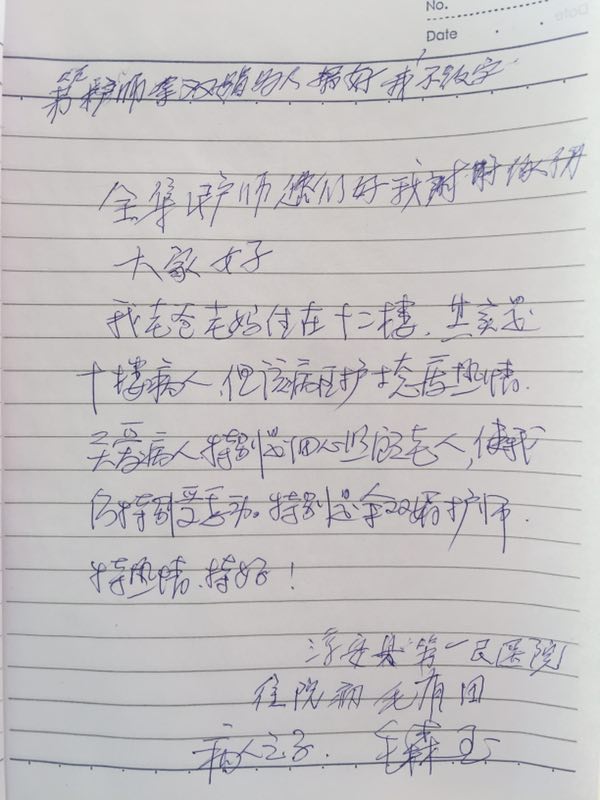 No.
Date
护师 双 为人 好 我不 字
全 护师您们好我谢谢你们
大家好
我老爸老妈住在十二楼,其实是
十楼病人,但该病区护士态度热情、
关爱病人特别是细心照顾老人,使我
们特别受感动。特别是余双娟护师.
特热情、特好!
淳安县第一人民医院
住院病
病人之子. 毛森玉